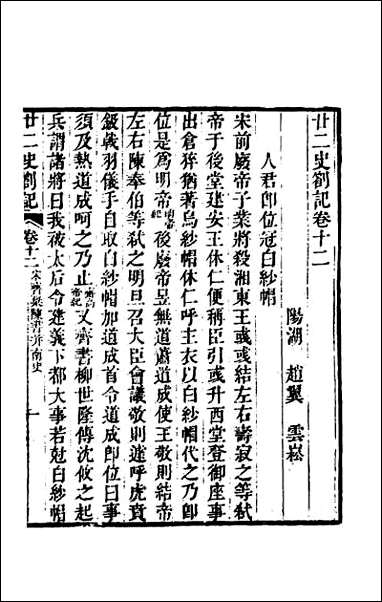 廿二史劄記卷十二
陽湖 趙翼 雲崧
人君即位冠白紗帽
宋前廢帝子業將殺湘東王彧彧結左右壽寂之等弒
帝于後堂建安王休仁便稱臣引彧升西堂登御座事
出倉猝猶著烏紗帽休仁呼主衣以白紗帽代之乃即
位是為明帝明帝紀後廢帝昱無道蕭道成使王敬則結帝
左右陳奉伯等弒之明旦召大臣會議敬則遽呼虎賁
鈒戟羽儀手自取白紗帽加道成首令道成即位曰事
須及熱道成呵之乃止齊高帝紀又齊書柳世隆傳沈攸之起
兵謂諸將曰我被太后令建義下都大事若尅白紗帽
廿二史劄記 卷十二 宋齊梁陳書并南史 一